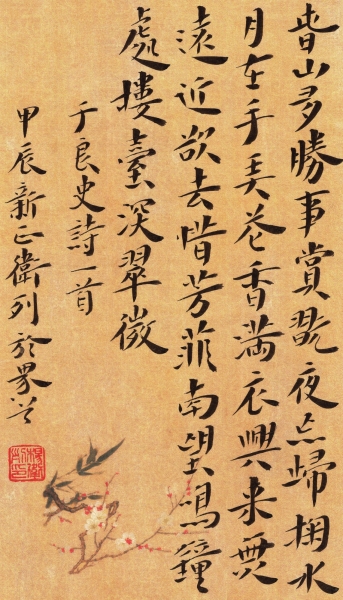 春山多勝事賞翫夜忘歸掬水
月在手弄花香滿衣興來無
遠近欲去惜芳菲南望鳴鐘
處樓臺深翠微
于良史詩一首
甲辰新正衛列於